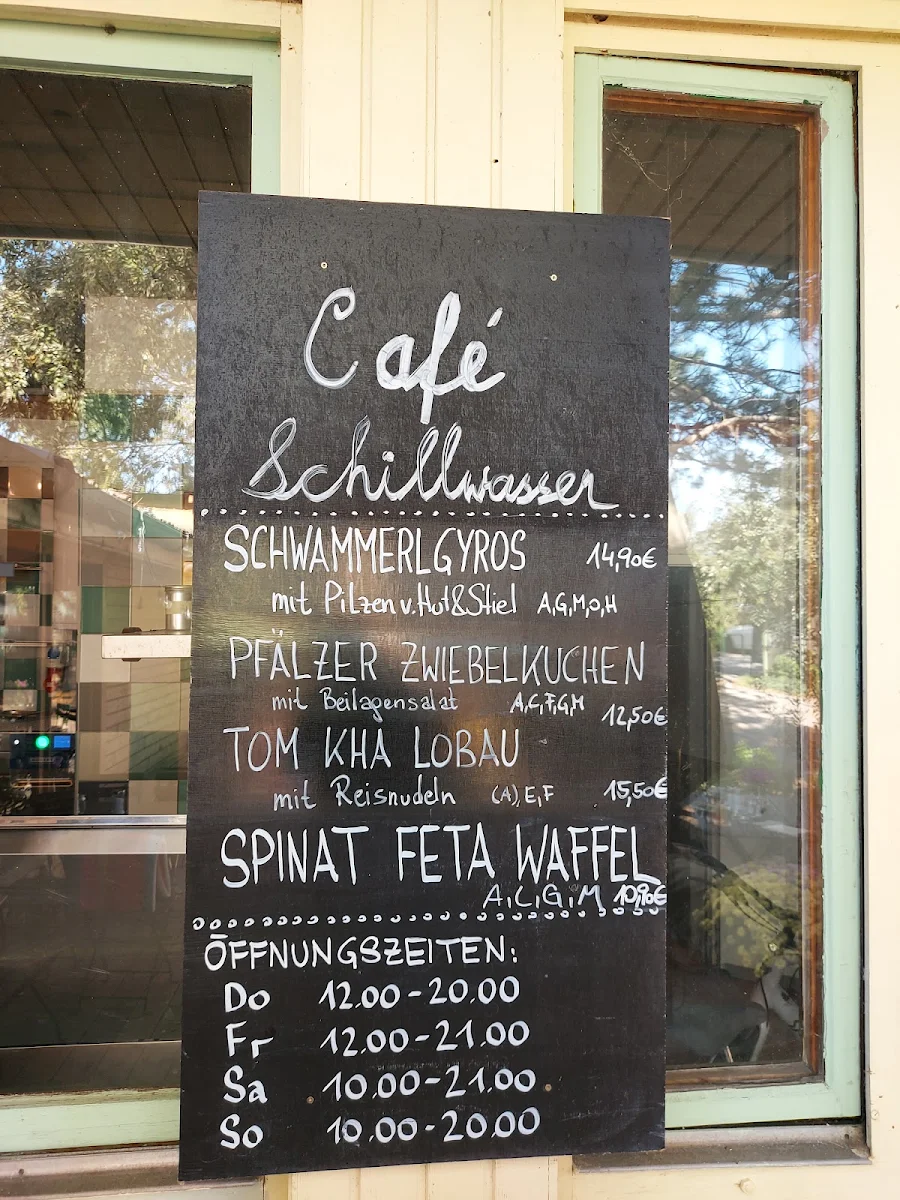 Café
Schillwasser
SCHWAMMERLGYROS 14,90€
mit Pilzen v. Hut & Stiel A,G,M,O,H
PFÄLZER ZWIEBELKUCHEN
mit Beilagensalat A,C,F,G,M 12,50€
TOM KHA LOBAU
mit Reisnudeln (A),E,F 15,50€
SPINAT FETA WAFFEL
A,C,G,M 10,90€
ÖFFNUNGSZEITEN:
Do 12.00-20.00
Fr 12.00-21.00
Sa 10.00-21.00
So 10.00-20.00